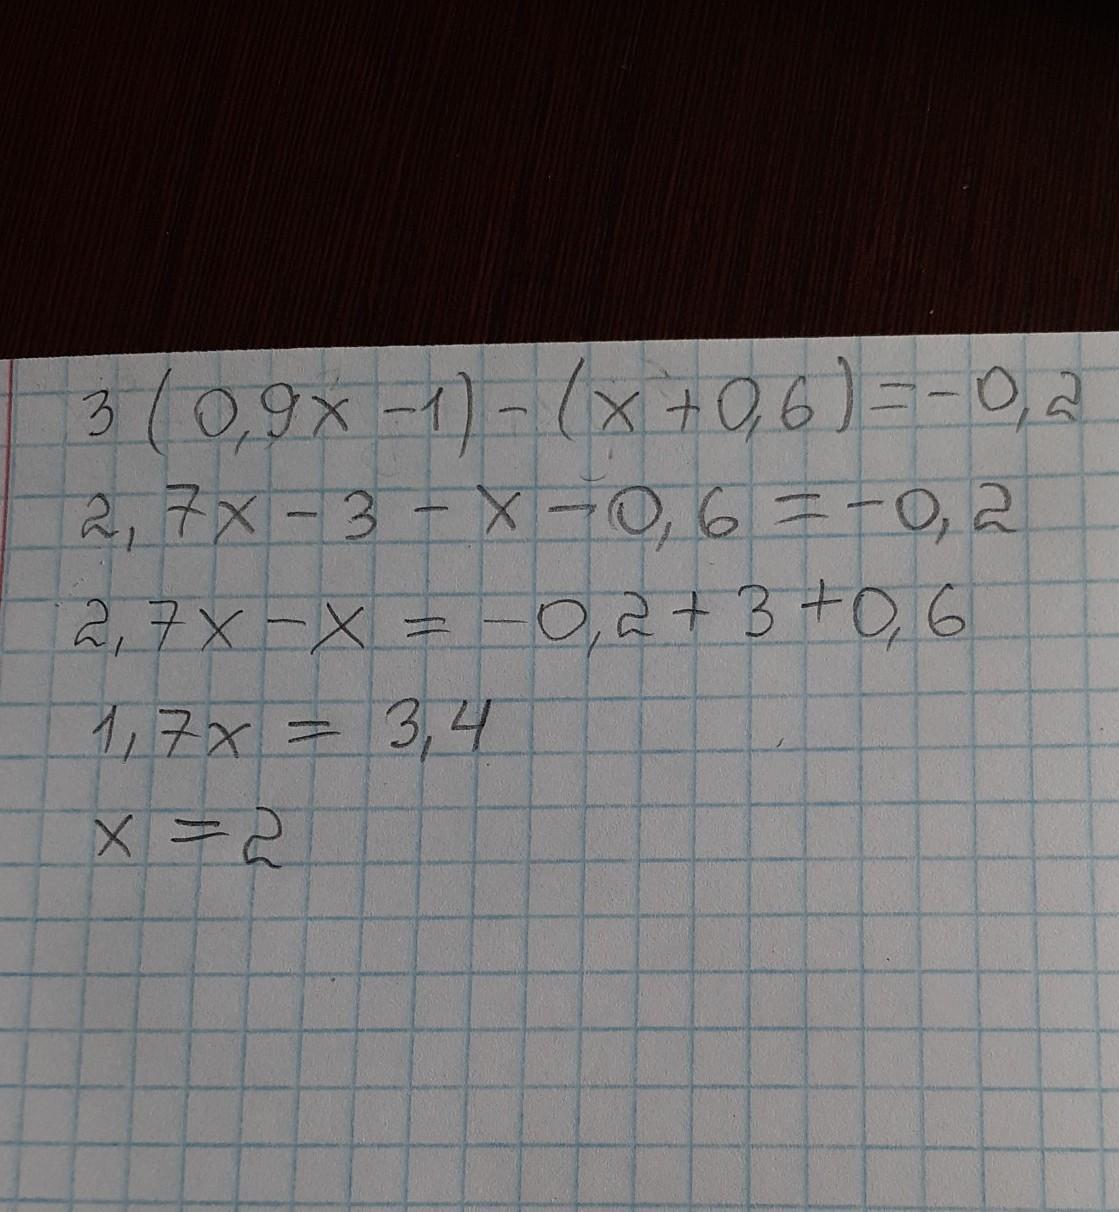 3(0,9x-1)-(x+0,6)=-0,2
2,7x-3-x-0,6=-0,2
2,7x-x=-0,2+3+0,6
1,7x=3,4
x=2